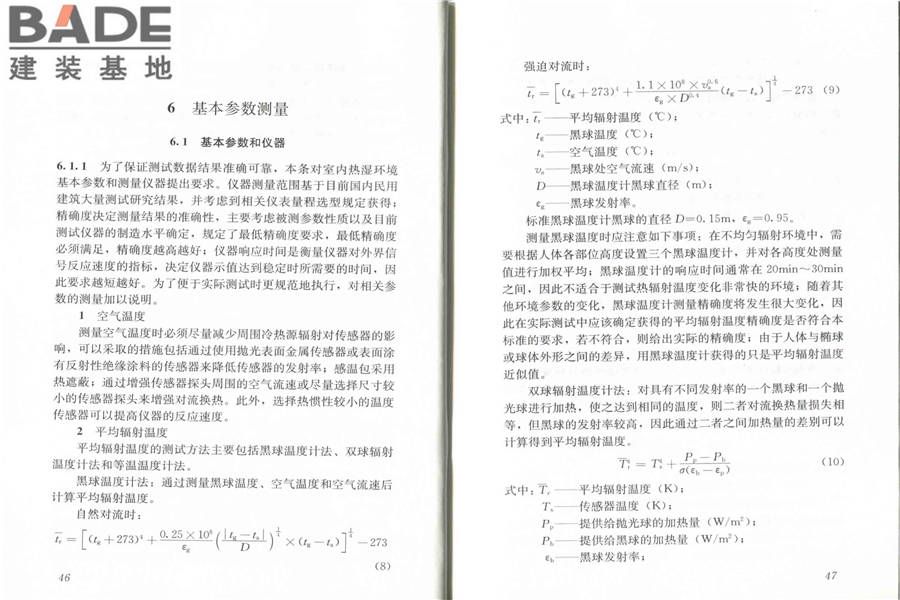 BADE
建装基地
6 基本参数测量
6.1 基本参数和仪器
6.1.1 为了保证测试数据结果准确可靠，本条对室内热湿环境
基本参数和测量仪器提出要求。仪器测量范围基于目前国内民用
建筑大量测试研究结果，并考虑到相关仪表量程选型规定获得；
精确度决定测量结果的准确性，主要考虑被测参数性质以及目前
测试仪器的制造水平确定，规定了最低精确度要求，最低精确度
必须满足，精确度越高越好；仪器响应时间是衡量仪器对外界信
号反应速度的指标，决定仪器示值达到稳定时所需要的时间，因
此要求越短越好。为了便于实际测试时更规范地执行，对相关参
数的测量加以说明。
1 空气温度
测量空气温度时必须尽量减少周围冷热源辐射对传感器的影
响，可以采取的措施包括通过使用抛光表面金属传感器或表面涂
有反射性绝缘涂料的传感器来降低传感器的发射率；感温包采用
热遮蔽；通过增强传感器探头周围的空气流速或尽量选择尺寸较
小的传感器探头来增强对流换热。此外，选择热惯性较小的温度
传感器可以提高仪器的反应速度。
2 平均辐射温度
平均辐射温度的测试方法主要包括黑球温度计法、双球辐射
温度计法和等温温度计法。
黑球温度计法：通过测量黑球温度、空气温度和空气流速后
计算平均辐射温度。
自然对流时：
t̄r = [(tg+273)⁴ + 0.25×10⁸/εg (|tg−ta|/D)^¼ × (tg−ta)]^¼ −273
(8)
46
强迫对流时：
t̄r = [(tg+273)⁴ + 1.1×10⁸×va^0.6/εg×D^0.4 (tg−ta)]^¼ −273 (9)
式中：t̄r——平均辐射温度（℃）；
tg——黑球温度（℃）；
ta——空气温度（℃）；
va——黑球处空气流速（m/s）；
D——黑球温度计黑球直径（m）；
εg——黑球发射率。
标准黑球温度计黑球的直径 D=0.15m，εg=0.95。
测量黑球温度时应注意如下事项：在不均匀辐射环境中，需
要根据人体各部位高度设置三个黑球温度计，并对各高度处测量
值进行加权平均；黑球温度计的响应时间通常在 20min～30min
之间，因此不适合于测试热辐射温度变化非常快的环境；随着其
他环境参数的变化，黑球温度计测量精确度将发生很大变化，因
此在实际测试中应该确定获得的平均辐射温度精确度是否符合本
标准的要求，若不符合，则给出实际的精确度；由于人体与椭球
或球体外形之间的差异，用黑球温度计获得的只是平均辐射温度
近似值。
双球辐射温度计法：对具有不同发射率的一个黑球和一个抛
光球进行加热，使之达到相同的温度，则二者对流换热量损失相
等，但黑球的发射率较高，因此通过二者之间加热量的差别可以
计算得到平均辐射温度。
T̄r⁴ = Ts⁴ + Pp−Pb/σ(εb−εp) (10)
式中：T̄r——平均辐射温度（K）；
Ts——传感器温度（K）；
Pp——提供给抛光球的加热量（W/m²）；
Pb——提供给黑球的加热量（W/m²）；
εb——黑球发射率；
47